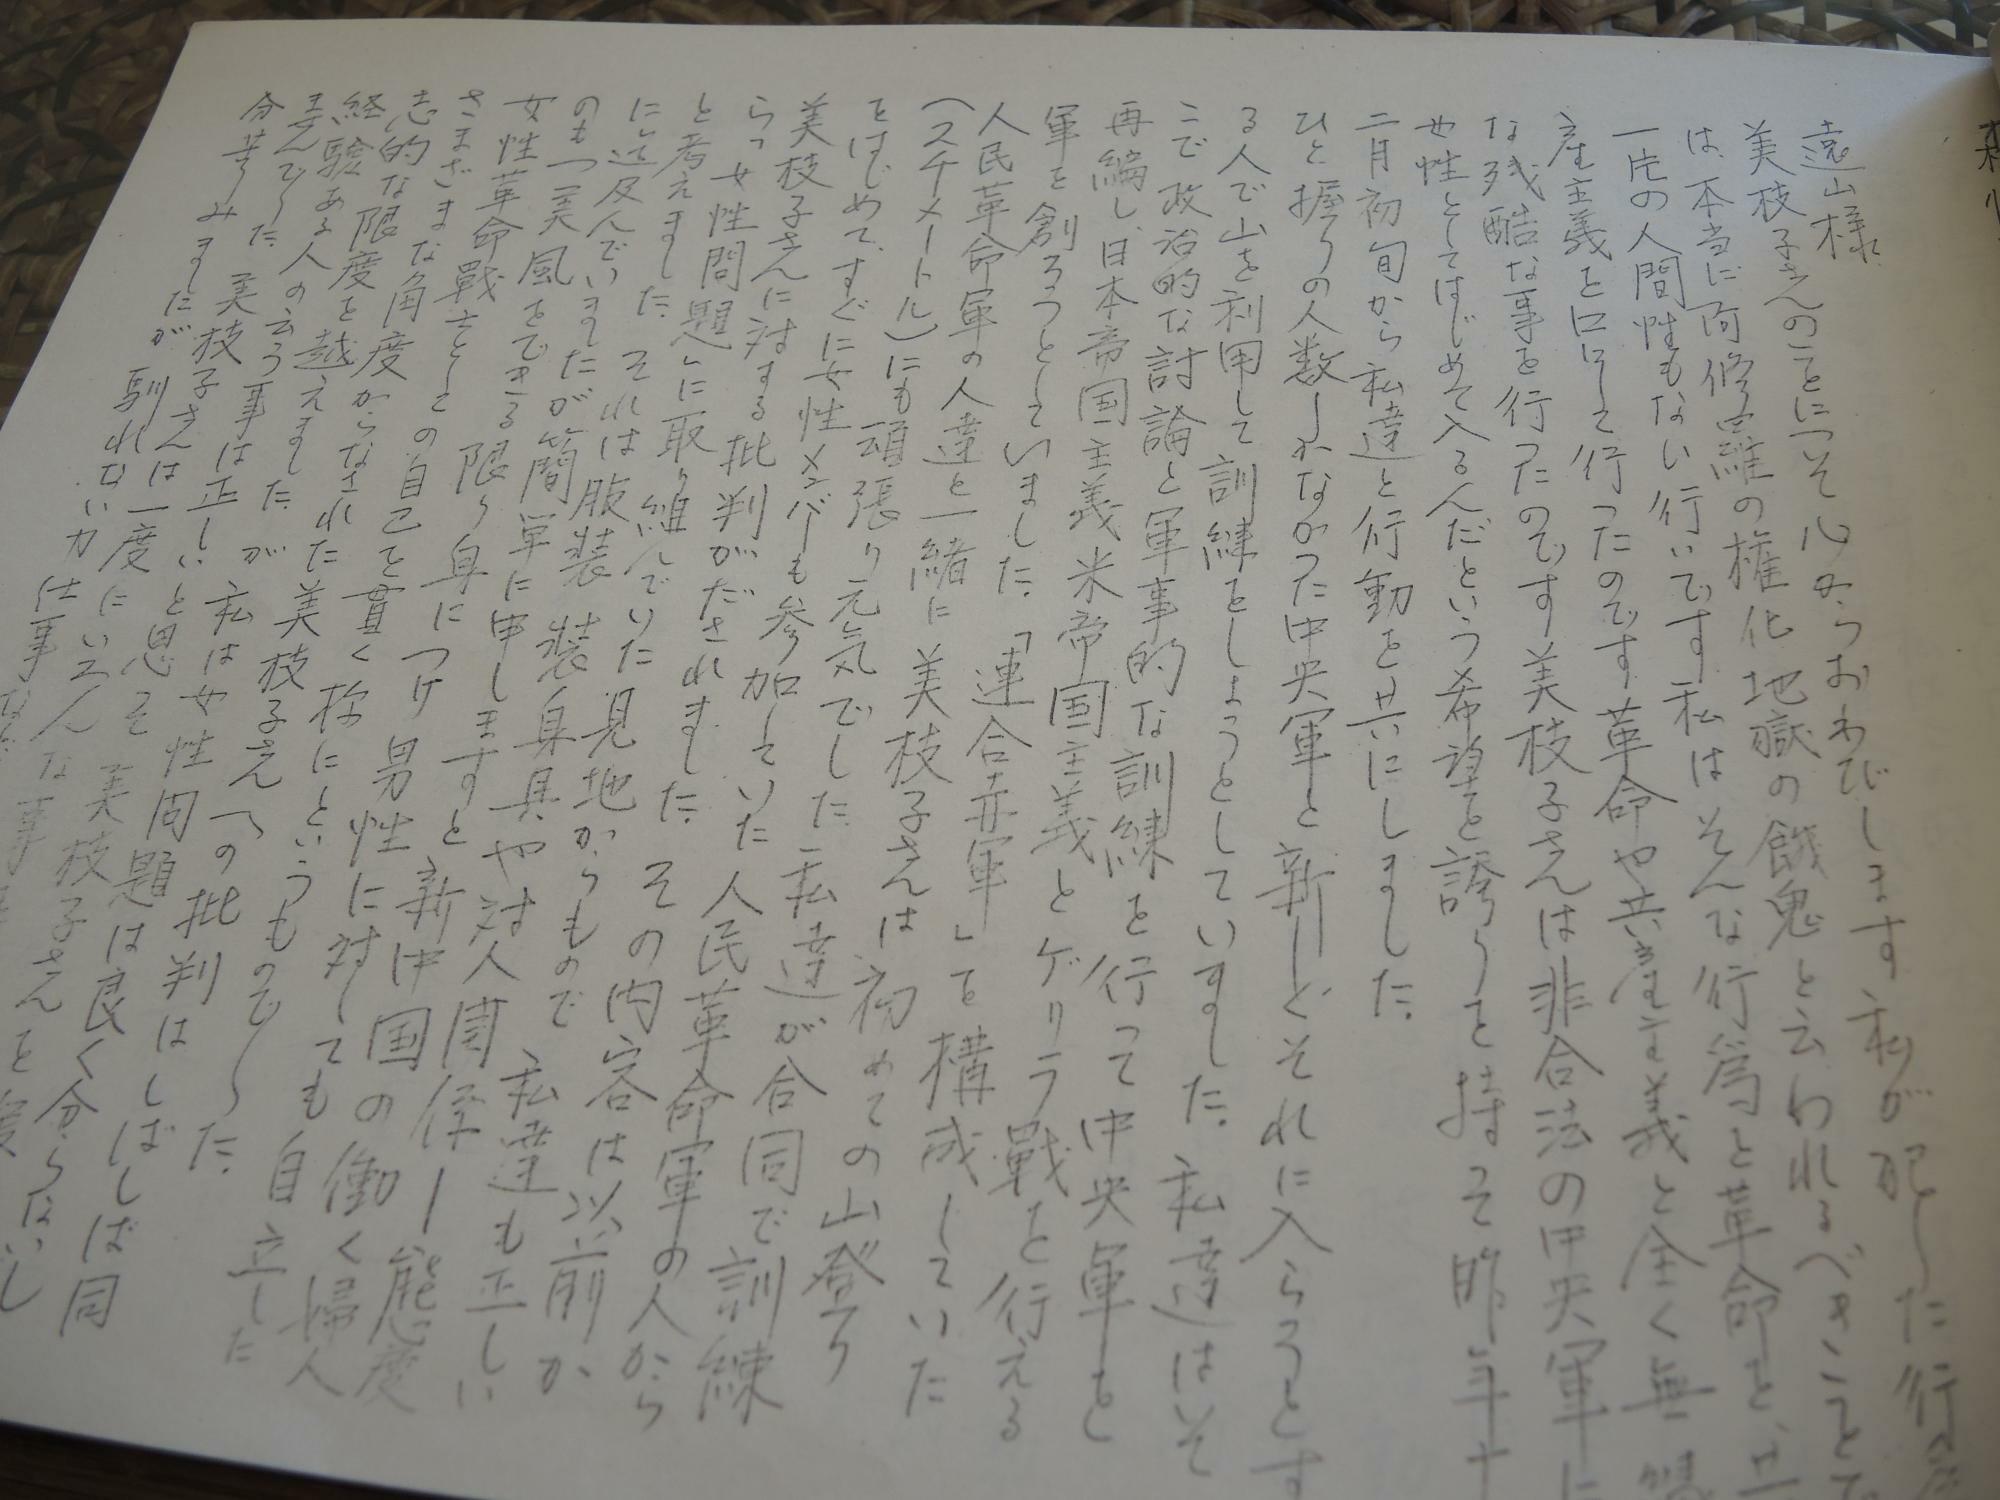 遠山様
美枝子さんのことについて心からおわびします 私が犯した行
は、本当に阿修羅の権化 地獄の餓鬼と云われるべきことで
一片の人間性もない行いです 私はそんな行為と革命と、共
産主義を口にして行ったのです 革命や共産主義と全く無縁
な残酷な事を行ったのです 美枝子さんは非合法の中央軍に
女性としてはじめて入る人だという希望と誇りを持って昨年十
二月初旬から私達と行動を共にしました。
ひと握りの人数しかいなかった中央軍と新しくそれに入ろうとす
る人で山を利用して訓練をしようとしていました。私達はそ
こで政治的な討論と軍事的な訓練を行って中央軍を
再編し、日本帝国主義 米帝国主義とゲリラ戦を行える
軍を創ろうとしていました。「連合赤軍」を構成していた
人民革命軍の人達と一緒に 美枝子さんは初めての山登り
(スチメートル)にも頑張り元気でした。私達が合同で訓練
をはじめて、すぐに女性メンバーも参加していた人民革命軍の人から
美枝子さんに対する批判がだされました。その内容は以前か
らっ女性問題いに取り組んでいた見地からもので 私達も正しい
と考えました。それは服装 装身具や対人関係ー態度
にまで及んでいましたが簡単に申しますと 新中国の働く婦人
のもつ美風をできる限り身につけ 男性に対しても自立した
女性革命戦士としての自己を貫く様にというものでした。
さまざまな角度からなされた美枝子さんへの批判はしばしば同
志的な限度を越えました。が 私は女性問題は良く分らないし
経験ある人の云う事は正しいと思って 美枝子さんを
ませんでした。美枝子さんは一度にいろんな事
分苦しみましたが 馴れない力仕事